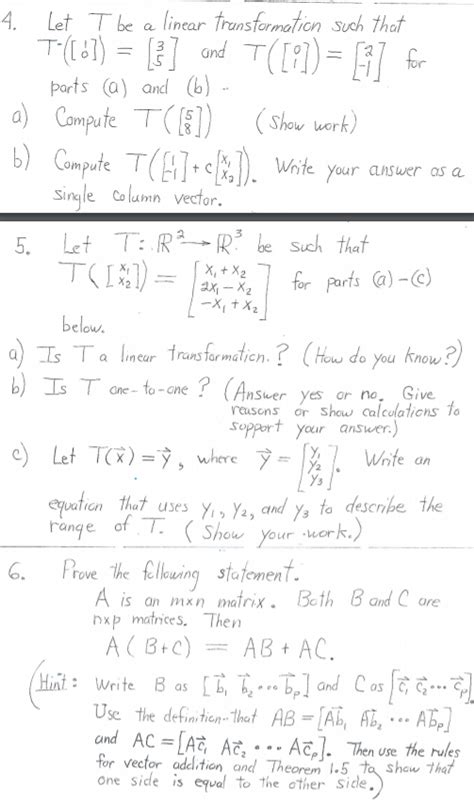 4. Let T be a linear transformation such that
T([1 0]) = [3 5] and T([0 1]) = [2 -1] for
parts (a) and (b) --
a) Compute T([5 8]) (Show work)
b) Compute T([1 -1] + c[x₁ x₂]). Write your answer as a
single column vector.
5. Let T: ℝ² → ℝ³ be such that
T([x₁ x₂]) = [x₁ + x₂ 2x₁ - x₂ -x₁ + x₂] for parts (a)-(c)
below.
a) Is T a linear transformation? (How do you know?)
b) Is T one-to-one? (Answer yes or no. Give
reasons or show calculations to
support your answer.)
c) Let T(x⃗) = y⃗, where y⃗ = [y₁ y₂ y₃]. Write an
equation that uses y₁, y₂, and y₃ to describe the
range of T. (Show your work.)
6. Prove the following statement.
A is an mxn matrix. Both B and C are
nxp matrices. Then
A(B+C) = AB + AC.
(Hint: Write B as [b⃗₁ b⃗₂ ... b⃗ₚ] and C as [c⃗₁ c⃗₂ ... c⃗ₚ].
Use the definition that AB = [Ab⃗₁ Ab⃗₂ ... Ab⃗ₚ]
and AC = [Ac⃗₁ Ac⃗₂ ... Ac⃗ₚ]. Then use the rules
for vector addition and Theorem 1.5 to show that
one side is equal to the other side.)